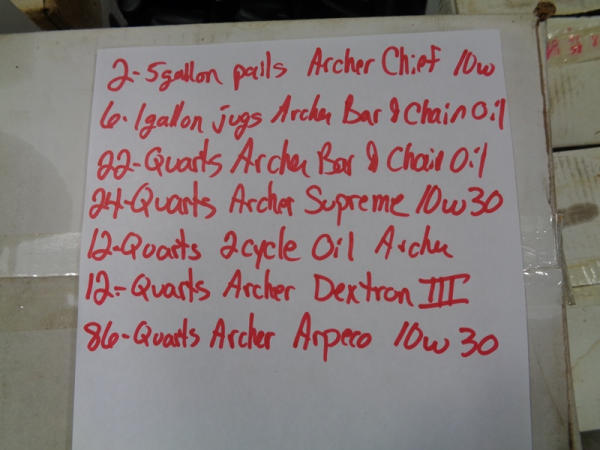 2-5gallon pails Archer Chief 10w
6-1gallon jugs Archer Bar & Chain Oil
22-Quarts Archer Bar & Chain Oil
24-Quarts Archer Supreme 10w30
12-Quarts 2cycle Oil Archer
12-Quarts Archer Dextron III
86-Quarts Archer Arpeco 10w30